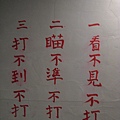 一看不見不打
二瞄不準不打
三打不到不打